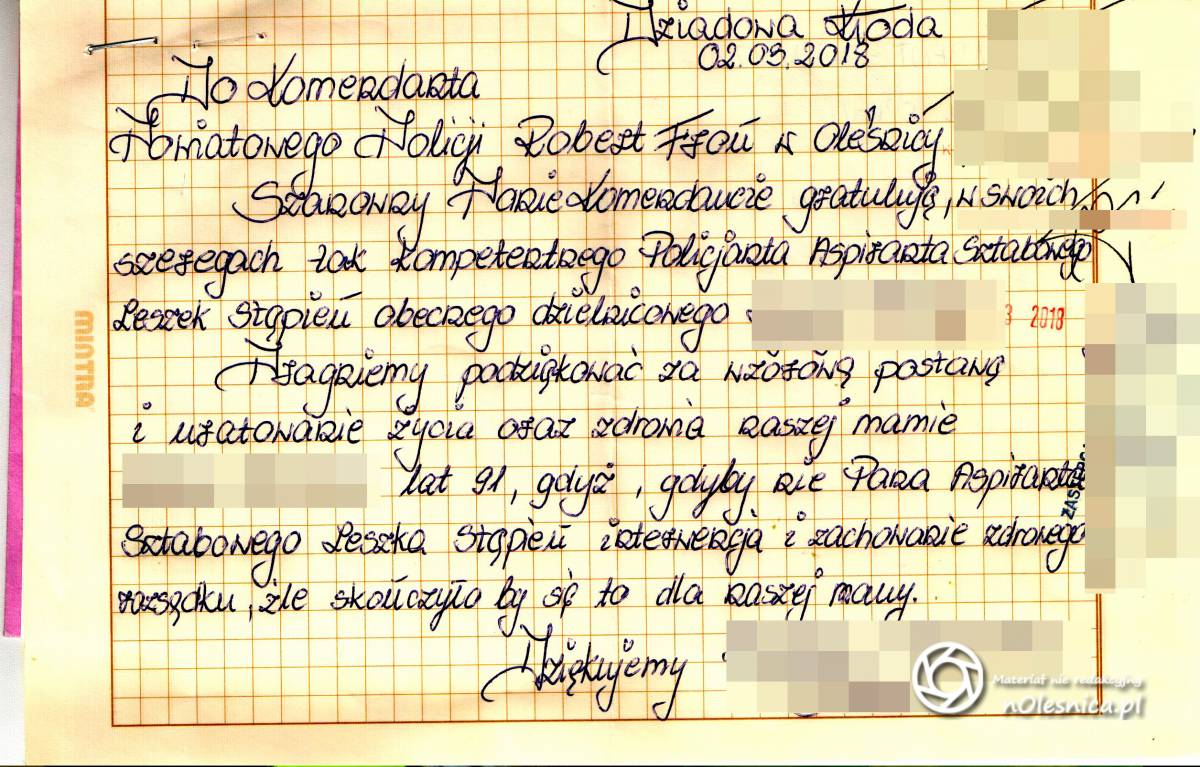 Dziadowa Kłoda
02.03.2018
Do Komendanta
Powiatowego Policji Robert Froń w Oleśnicy
Szanowny Panie Komendancie gratuluję, w swoich
szeregach tak kompetentnego Policjanta Aspiranta Sztabowego
Leszek Stąpień obecnego dzielnicowego
3 2018
Pragniemy podziękować za wzorową postawę
i uratowanie życia oraz zdrowia naszej mamie
lat 91, gdyż, gdyby nie Pana Aspiranta
Sztabowego Leszka Stąpień interwencja i zachowanie zdrowego
rozsądku, źle skończyło by się to dla naszej mamy.
Dziękujemy
MINTRA
ZAS
Materiał nie redakcyjny
nOlesnica.pl